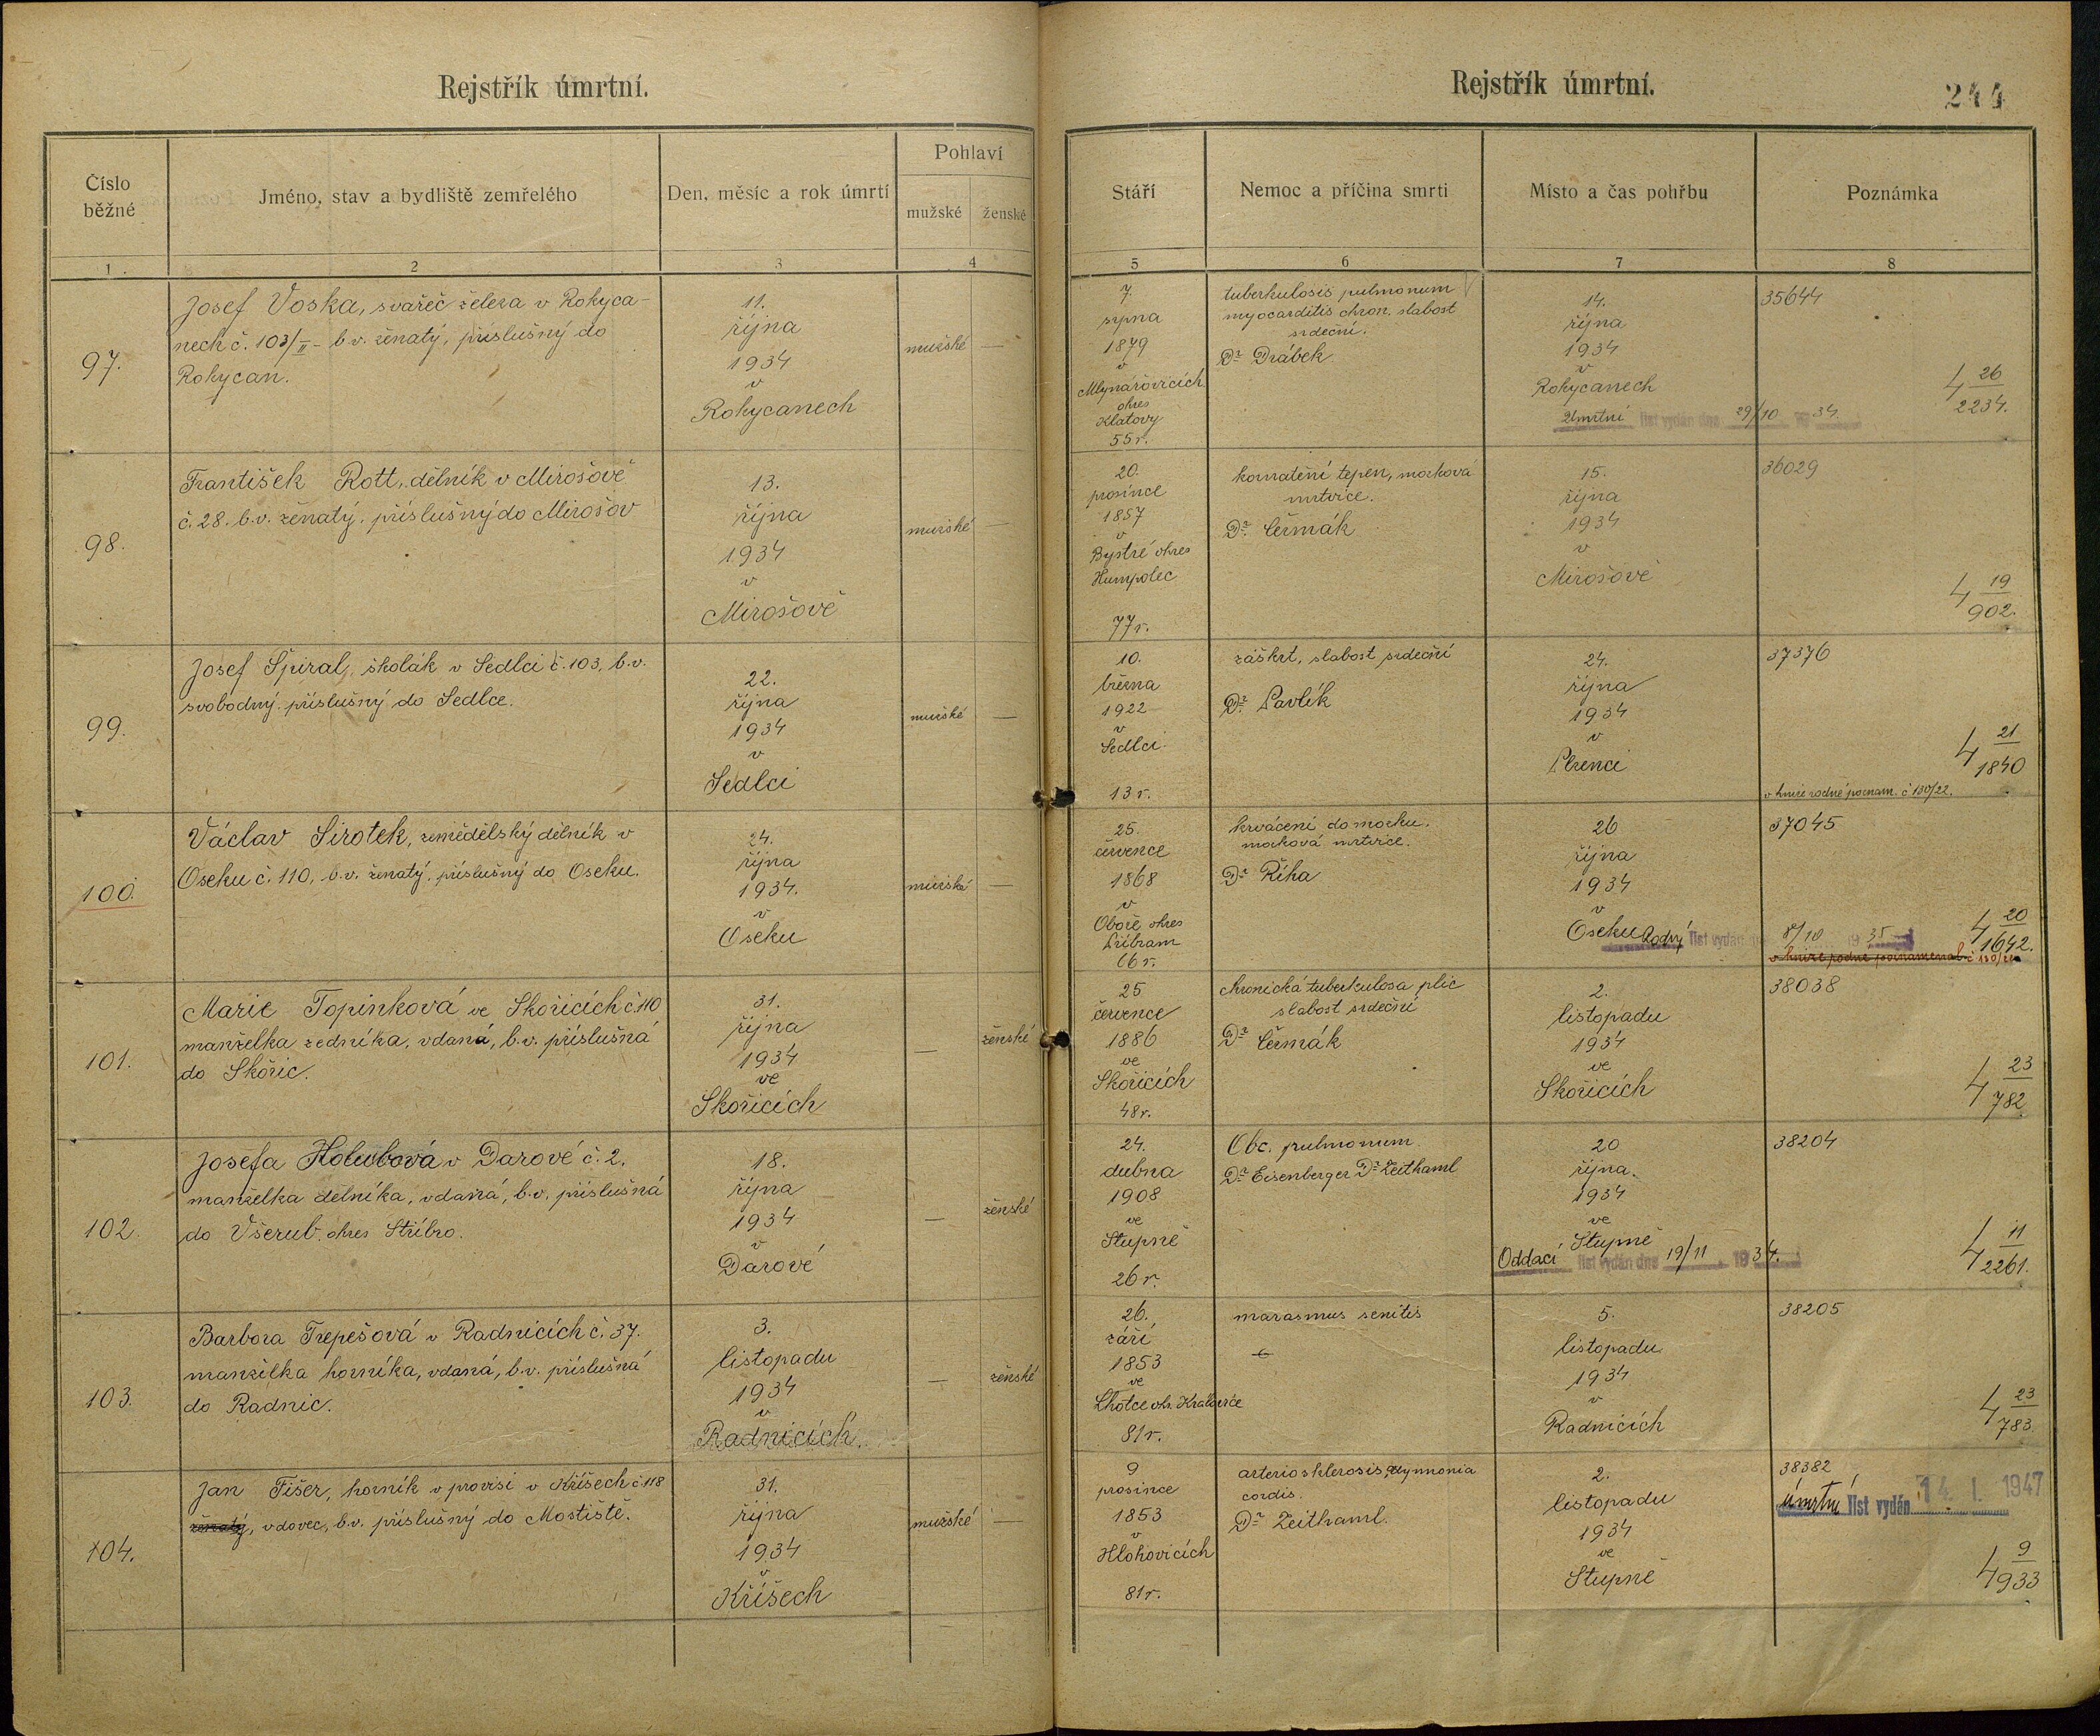 Rejstřík úmrtní.
Číslo běžné
Jméno, stav a bydliště zemřelého
Den, měsíc a rok úmrtí
Pohlaví
mužské
ženské
1
2
3
4
97.
Josef Voska, svařeč železa v Rokyca-
nech č. 103/II - b.v. ženatý, příslušný do
Rokycan.
11.
října
1934
v
Rokycanech
mužské
—
98.
František Rott, dělník v Mirošově
č. 28. b.v. ženatý, příslušný do Mirošov
13.
října
1934
v
Mirošově
mužské
—
99.
Josef Špiral, školák v Sedlci č. 103, b.v.
svobodný příslušný do Sedlce.
22.
října
1934
v
Sedlci
mužské
—
100.
Václav Sirotek, zemědělský dělník v
Oseku č. 110, b.v. ženatý, příslušný do Oseku.
24.
října
1934.
v
Oseku
mužské
—
101.
Marie Topinková ve Skořicích č. 110
manželka zedníka, vdaná, b.v. příslušná
do Skořic.
31.
října
1934
ve
Skořicích
—
ženské
102.
Josefa Holubová v Darové č. 2.
manželka dělníka, vdaná, b.v. příslušná
do Všerub. okres Stříbro.
18.
října
1934
v
Darové
—
ženské
103.
Barbora Trepešová v Radnicích č. 37.
manželka horníka, vdaná, b.v. příslušná
do Radnic.
3.
listopadu
1934
v
Radnicích.
—
ženské
104.
Jan Fišer, horník v provisi v Kříšech č. 118
ženatý, vdovec, b.v. příslušný do Mostiště.
31.
října
1934
v
Kříšech
mužské
—
Rejstřík úmrtní.
244
Stáří
Nemoc a příčina smrti
Místo a čas pohřbu
Poznámka
5
6
7
8
7.
srpna
1879
v
Mlynařovicích
okres
Klatovy
55 r.
tuberkulosis pulmonum
myocarditis chron. slabost
srdeční.
Dr Drábek
14.
října
1934
v
Rokycanech
Úmrtní list vydán dne 29/10 1934.
35644
4 26
2234.
20.
prosince
1857
v
Bystré okres
Humpolec
77 r.
kornatění tepen, mozková
mrtvice.
Dr. Čermák
15.
října
1934
v
Mirošově
36029
4 19
902.
10.
března
1922
v
Sedlci
13 r.
záškrt, slabost srdeční
Dr. Pavlík
24.
října
1934
v
Plzenci
37376
4 21
1840
v knize rodné poznam. č 130/22.
25.
července
1868
v
Oboře okres
Příbram
66 r.
krvácení do mozku.
mozková mrtvice.
Dr Říha
26
října
1934
v
Oseku
Rodný list vydán 8/10 1935
37045
4 20
1642.
v knize rodné poznamenal. č 130/22
25
července
1886
ve
Skořicích
48 r.
chronická tuberkulosa plic
slabost srdeční
Dr Čermák
2.
listopadu
1934
ve
Skořicích
38038
4 23
782
24.
dubna
1908
ve
Stupně
26 r.
Obc. pulmonum
Dr Eisenberger Dr Zeithaml
20
října.
1934
ve
Stupně
Oddací list vydán dne 19/11 1934.
38204
4 11
2261.
26.
září
1853
ve
Lhotce okr. Kralovice
81 r.
marasmus senilis
5.
listopadu
1934
v
Radnicích
38205
4 23
783
9
prosince
1853
v
Hlohovicích
81 r.
cordis.
Dr Zeithaml.
2.
listopadu
1934
ve
Stupně
38382
úmrtní list vydán 14. I. 1947
4 9
933